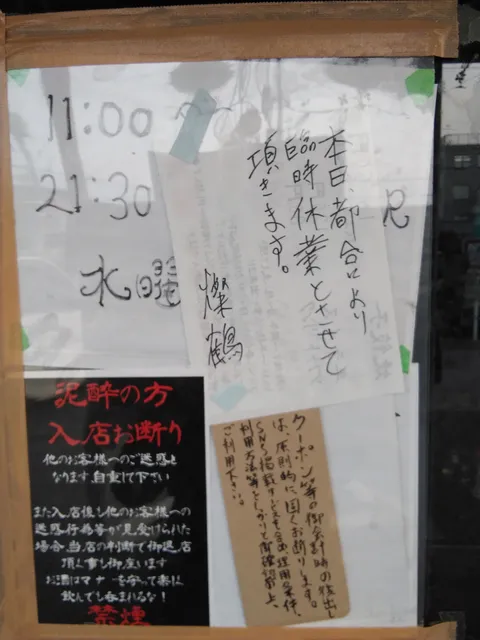 11:00
21:30
水曜
本日、都合により
臨時休業とさせて
頂きます。
燦鶴
泥酔の方
入店お断り
他のお客様へのご迷惑と
なります。自重して下さい
また入店後も他のお客様への
迷惑行為等が見受けられた
場合、当店の判断で御退店
頂く事も御座います
お酒はマナーを守って楽しく
飲んでも呑まれるな!
禁煙
クーポン等の御会計時の後出し
は、原則的に固くお断りします。
利用方法等をしっかりと御確認の上、
ご利用下さい。